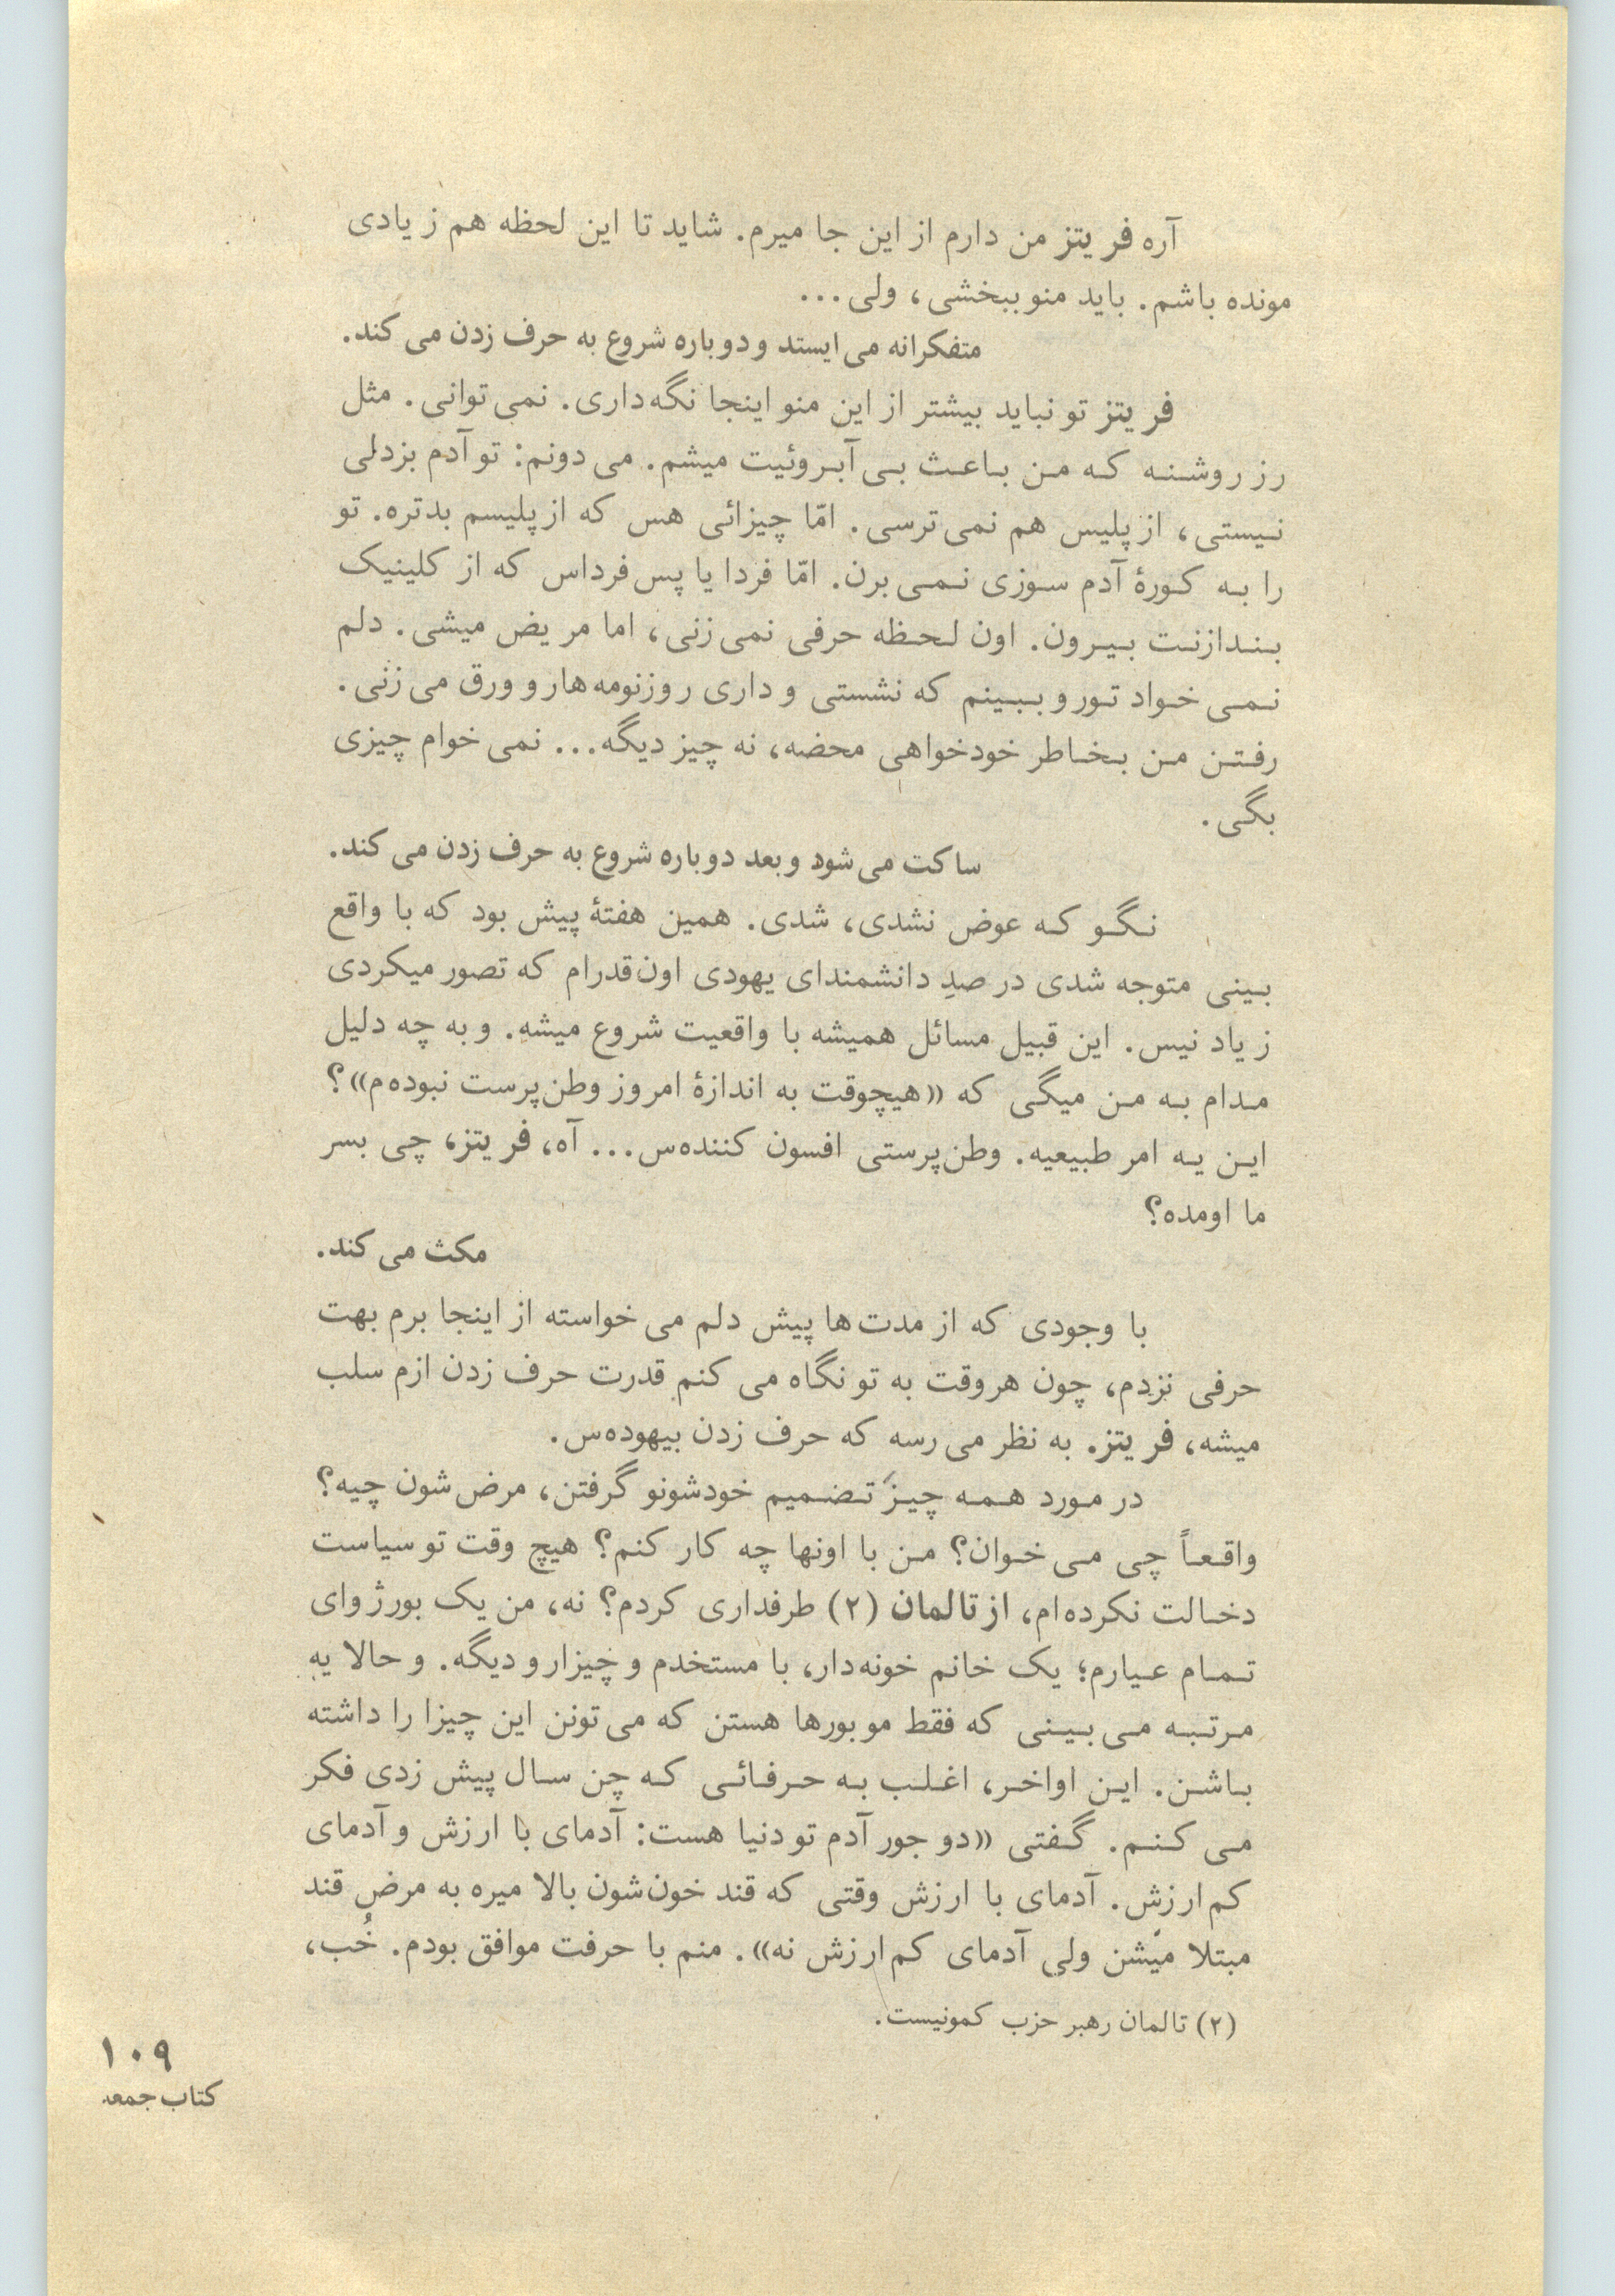 آره فریتز من دارم از این جا میرم. شاید تا این لحظه هم زیادی
مونده باشم. باید منو ببخشی، ولی...
متفکرانه می‌ایستد و دوباره شروع به حرف زدن می‌کند.
فریتز تو نباید بیشتر از این منو اینجا نگه‌داری. نمی‌توانی. مثل
رز روشنه که من باعث بی‌آبروئیت میشم. می‌دونم: تو آدم بزدلی
نیستی، از پلیس هم نمی‌ترسی. امّا چیزائی هس که از پلیسم بدتره. تو
را به کورهٔ آدم سوزی نمی‌برن. امّا فردا یا پس‌فرداس که از کلینیک
بندازنت بیرون. اون لحظه حرفی نمی‌زنی، اما مریض میشی. دلم
نمی‌خواد تورو ببینم که نشستی و داری روزنومه‌هارو ورق می‌زنی.
رفتن من بخاطر خودخواهی محضه، نه چیز دیگه... نمی‌خوام چیزی
بگی.
ساکت می‌شود و بعد دوباره شروع به حرف زدن می‌کند.
نگو که عوض نشدی، شدی. همین هفتهٔ پیش بود که با واقع
بینی متوجه شدی در صدِ دانشمندای یهودی اون‌قدرام که تصور میکردی
زیاد نیس. این قبیل مسائل همیشه با واقعیت شروع میشه. و به چه دلیل
مدام به من میگی که «هیچوقت به اندازهٔ امروز وطن‌پرست نبوده‌م»؟
این یه امر طبیعیه. وطن‌پرستی افسون کننده‌س... آه، فریتز، چی بسر
ما اومده؟
مکث می‌کند.
با وجودی که از مدت‌ها پیش دلم می‌خواسته از اینجا برم بهت
حرفی نزدم، چون هروقت به تو نگاه می‌کنم قدرت حرف زدن ازم سلب
میشه، فریتز. به نظر می‌رسه که حرف زدن بیهوده‌س.
در مورد همه چیز تضمیم خودشونو گرفتن، مرض‌شون چیه؟
واقعاً چی می‌خوان؟ من با اونها چه کار کنم؟ هیچ وقت تو سیاست
دخالت نکرده‌ام، از تالمان (۲) طرفداری کردم؟ نه، من یک بورژوای
تمام عیارم؛ یک خانم خونه‌دار، با مستخدم و چیزارو دیگه. و حالا یه
مرتبه می‌بینی که فقط موبورها هستن که می‌تونن این چیزا را داشته
باشن. این اواخر، اغلب به حرفائی که چن سال پیش زدی فکر
می‌کنم. گفتی «دو جور آدم تو دنیا هست: آدمای با ارزش و آدمای
کم‌ارزش. آدمای با ارزش وقتی که قند خون‌شون بالا میره به مرض قند
مبتلا میشن ولی آدمای کم‌ارزش نه». منم با حرفت موافق بودم. خُب،
(۲) تالمان رهبر حزب کمونیست.
۱۰۹
کتاب جمعه